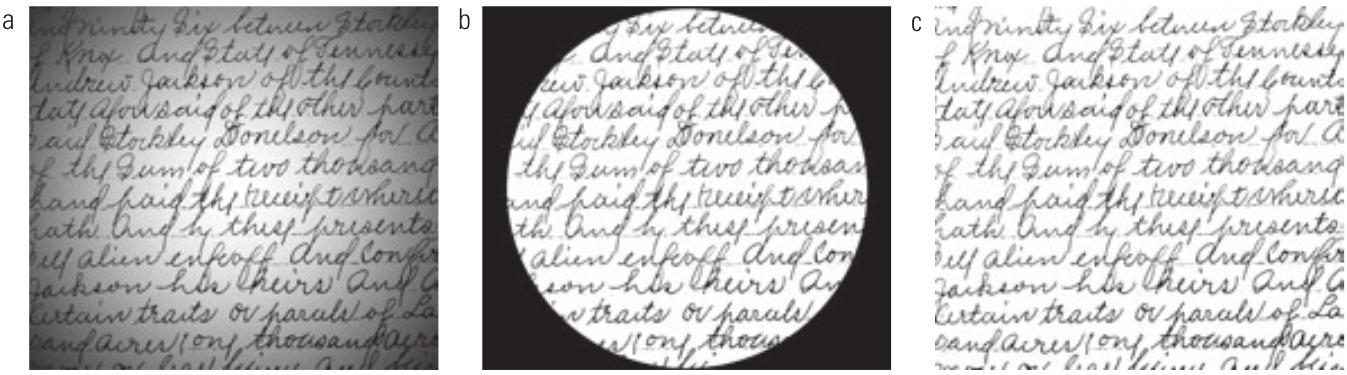 a
indninety Six between Stockley
of Knox and State of Tennessee
Andrew Jackson of the County
tate Aforesaid of the other part
said Stockley Donelson for A
of the Sum of two thousand
hand paid the receipt wherie
hath And by these presents
ell alien enfeoff And Confir
Jackson his heirs And A
certain traits or parcels of La
sand acres long thousand acre
b
y Six between
and State of Tenn
rew Jackson of the Co
Aforesaid of the other p
aid Stockley Donelson for
the Sum of two thousan
and paid the receipt wher
th And by these presen
alien enfeoff And Con
son his heirs An
n traits or parcels
es long thousa
c
indninety Six between Stockley
of Knox and State of Tennessee
Andrew Jackson of the County
tate Aforesaid of the other part
said Stockley Donelson for A
of the Sum of two thousand
hand paid the receipt wherie
hath And by these presents
ell alien enfeoff And Confir
Jackson his heirs And A
certain traits or parcels of La
sand acres long thousand acre